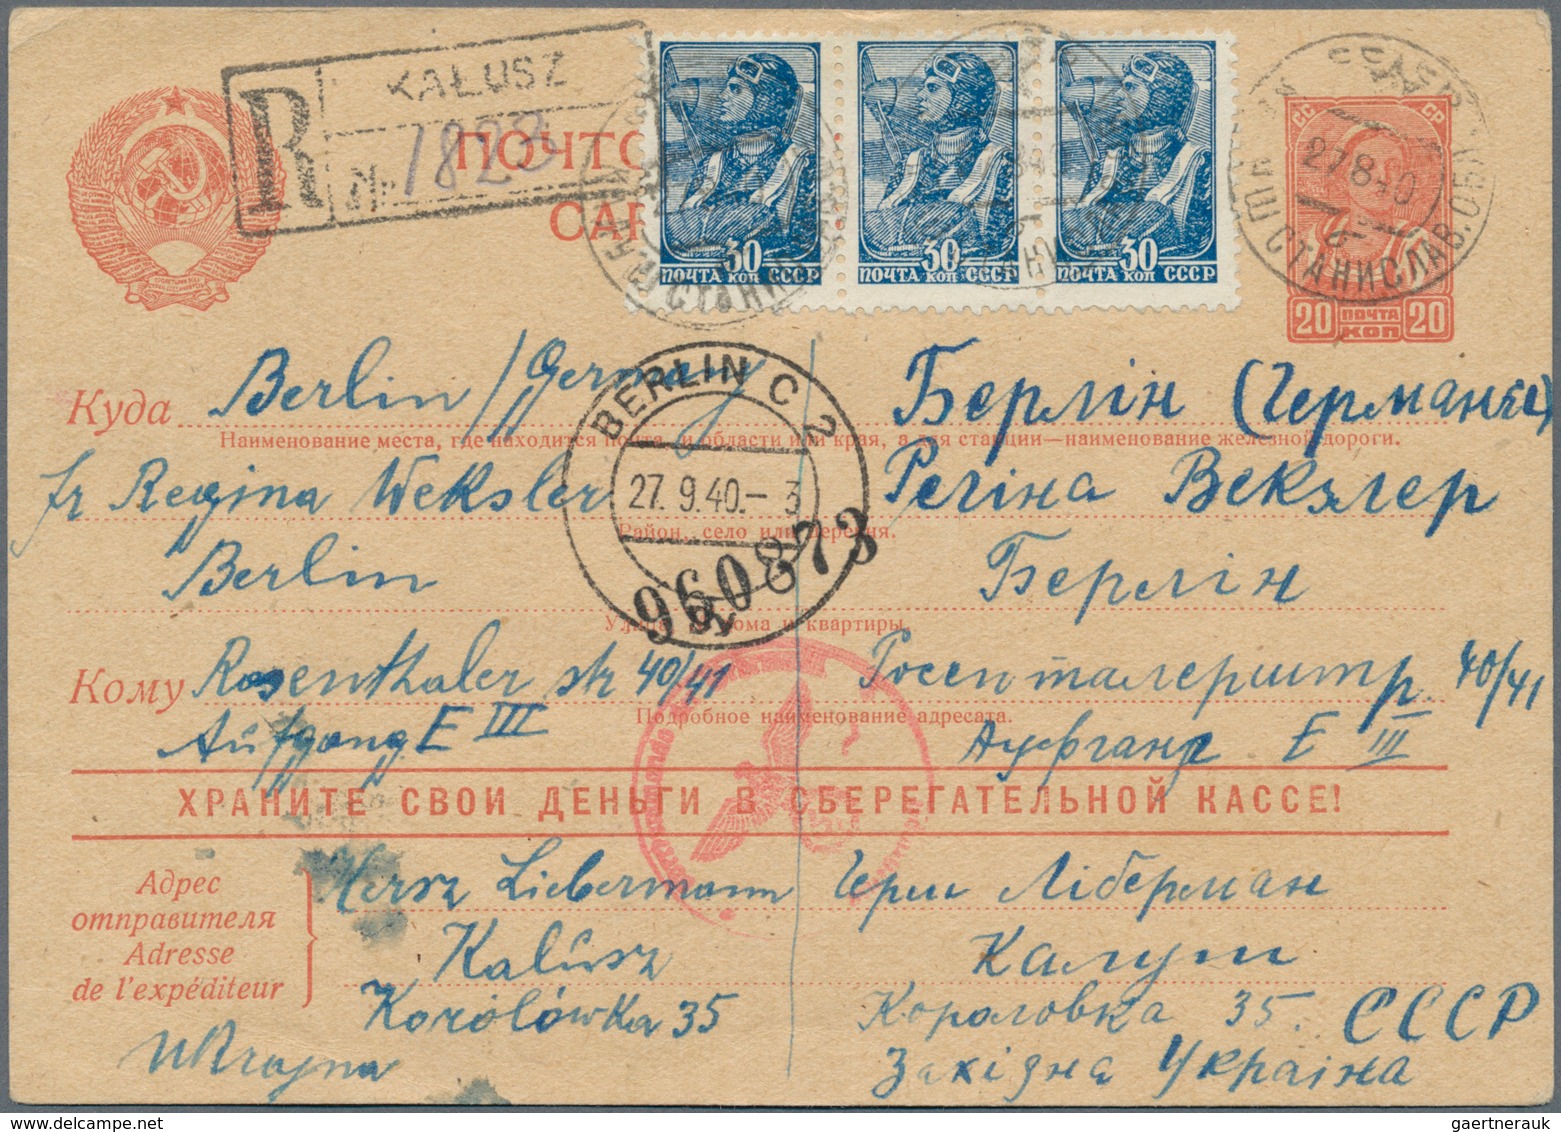 R KAŁUSZ
№ 1823
СС СР
30 30 30
ПОЧТА КОП СССР ПОЧТА КОП СССР ПОЧТА КОП СССР
27 8 40
СТАНИСЛАВ. ОБЛ
20 ПОЧТА КОП 20
BERLIN C 2
27. 9. 40. - 3
960873
Куда Berlin / Germany Берлін (Германія)
Наименование места, где находится почта, и области или края, а для станции—наименование железной дороги.
fr Regina Weksler Регіна Векслер
Район, село или деревня.
Berlin Берлін
Улица, № дома и квартиры.
Кому Rosenthaler str 40/41 Росентталерштр. 40/41
Подробное наименование адресата.
Aufgang E III Ауфганг Е III
ХРАНИТЕ СВОИ ДЕНЬГИ В СБЕРЕГАТЕЛЬНОЙ КАССЕ!
Адрес
отправителя
Adresse
de l'expéditeur
Hersz Liebermann Герш Ліберман
Kałusz Калуш
Korolówka 35 Короловка 35. СССР
Ukrajna Західна Україна
gaertnerauk / www.delcampe.net